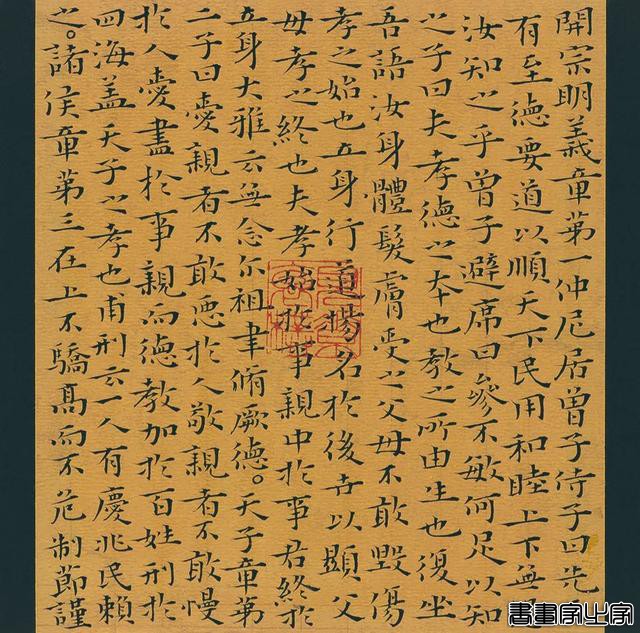 開宗明義章第一仲尼居曾子侍子曰先
有至德要道以順天下民用和睦上下無
汝知之乎曾子避席曰參不敏何足以知
之子曰夫孝德之本也教之所由生也復坐
吾語汝身體髮膚受之父母不敢毀傷
孝之始也立身行道揚名於後世以顯父
母孝之終也夫孝始於事親中於事君終於
立身大雅云無念尔祖聿脩厥德。天子章第
二子曰愛親者不敢惡於人敬親者不敢慢
於人愛盡於事親而德教加於百姓刑於
四海盖天子之孝也甫刑云一人有慶兆民賴
之。諸侯章第三在上不驕高而不危制節謹
書畫家之家